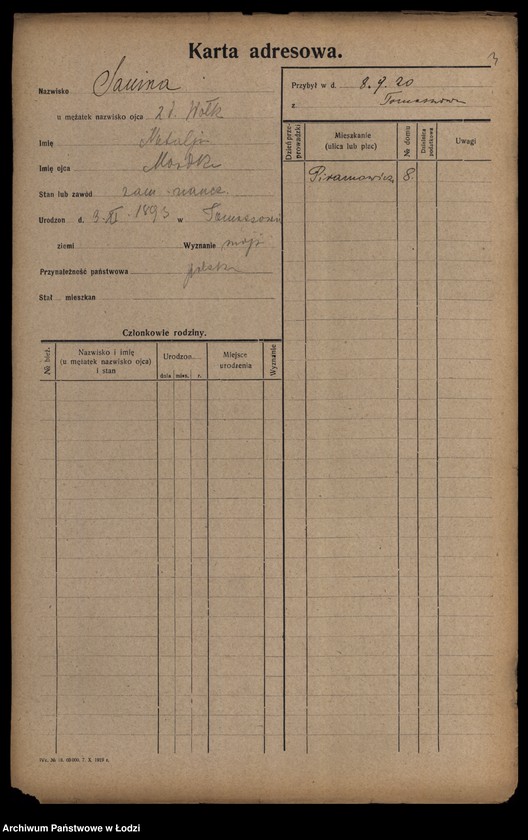 Karta adresowa.
3
Nazwisko Sauina
u mężatek nazwisko ojca z d. Wołk
Imię Natalja
Imię ojca Mordka
Stan lub zawód zam.
Urodzon d. 3.XI.1893 w Tomaszowie
ziemi Wyznanie mojż
Przynależność państwowa polska
Stał mieszkan
Członkowie rodziny.
№ bież.
Nazwisko i imię
(u mężatek nazwisko ojca)
i stan
Urodzon.
dnia mies. r.
Miejsce
urodzenia
Wyznanie
Przybył w d. 8.9.20
z Tomaszowa
Dzień prze-
prowadzki
Mieszkanie
(ulica lub plac)
№ domu
Dzielnica
podatkowa
Uwagi
Piramowicz 8.
7. X. 1919 r.
Archiwum Państwowe w Łodzi